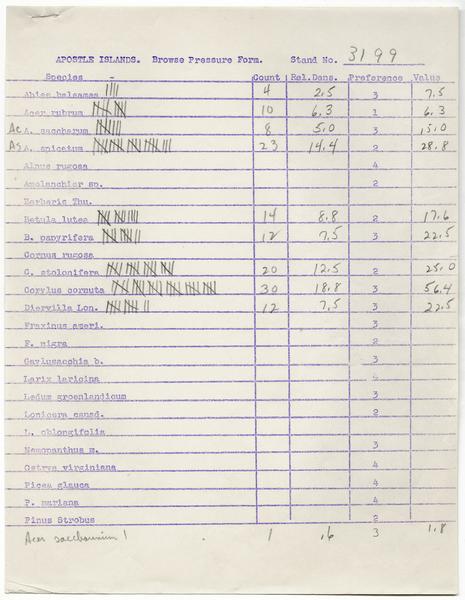 APOSTLE ISLANDS. Browse Pressure Form. Stand No. 3199
Species - Count Rel.Dens. Preference Value
Abies balsamea 4 2.5 3 7.5
Acer rubrum 10 6.3 1 6.3
Ac A. saccharum 8 5.0 3 15.0
As A. spicatum 23 14.4 2 28.8
Alnus rugosa 4
Amelanchier sp. 2
Berberis Thu.
Betula lutea 14 8.8 2 17.6
B. papyrifera 12 7.5 3 22.5
Cornus rugosa
C. stolonifera 20 12.5 2 25.0
Corylus cornuta 30 18.8 3 56.4
Diervilla Lon. 12 7.5 3 22.5
Fraxinus ameri. 3
F. nigra 2
Gaylusacchia b. 3
Larix laricina
Ledum groenlandicum 3
Lonicera canad. 2
L. oblongifolia
Nemopanthus m. 3
Ostrya virginiana 4
Picea glauca 4
P. mariana 4
Pinus Strobus 2
Acer saccharinum 1 1 .6 3 1.8